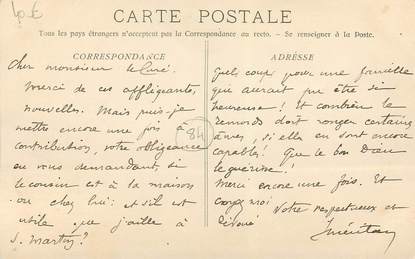 40 €
CARTE POSTALE
Tous les pays étrangers n'acceptent pas la Correspondance au recto. — Se renseigner à la Poste.
CORRESPONDANCE
Cher monsieur le Curé.
Merci de ces affligeantes
nouvelles. Mais puis-je
mettre encore une fois à
contribution, votre obligeance
en vous demandant, si
le cousin est à la maison
ou chez lui: et s'il est
utile que j'aille à
S. Martin?
84
ADRÉSSE
Quels coups pour une famille
qui aurait pu être si
heureuse! Et combien le
remords doit ronger certaines
âmes, si elles en sont encore
capables! Que le bon Dieu
le guérisse!
Merci encore une fois. Et
croyez moi
Votre respectueux et
dévoué